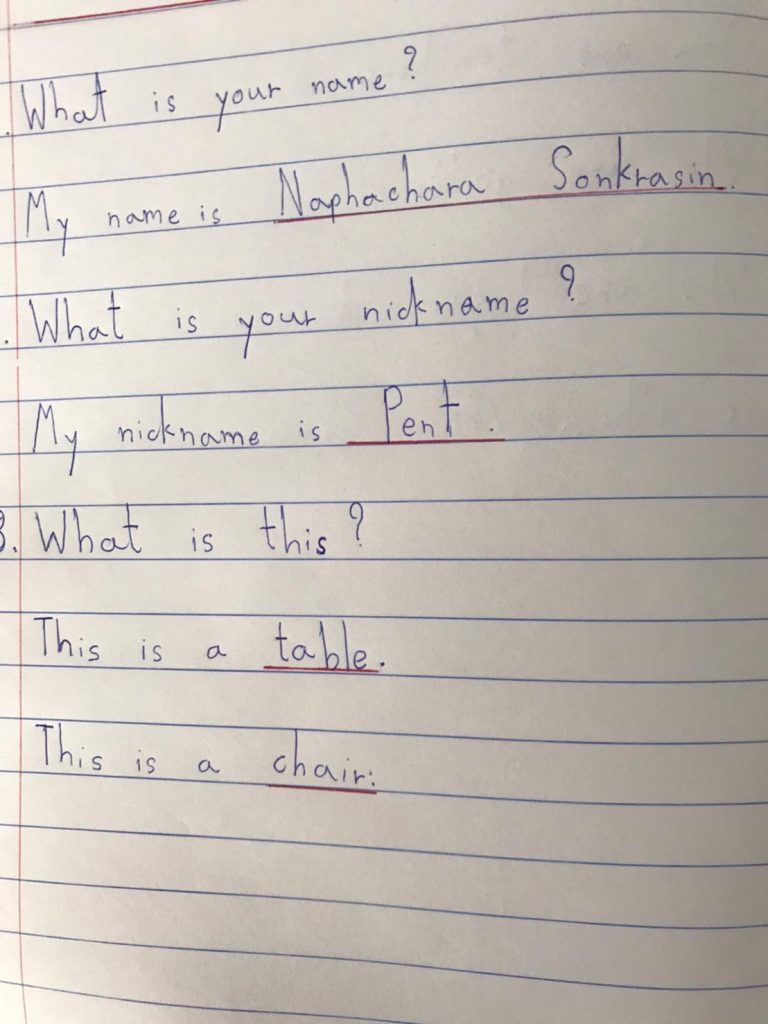 . What is your name?
My name is Naphachara Sonkrasin.
. What is your nickname?
My nickname is Pent.
3. What is this?
This is a table.
This is a chair: